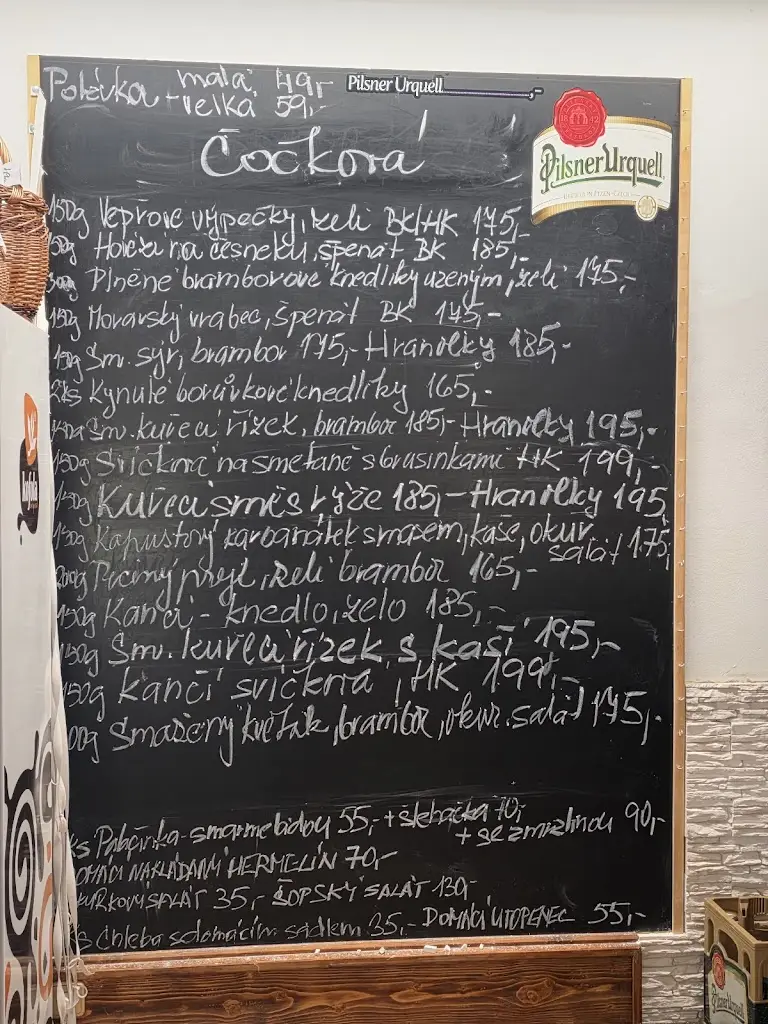 Polévka malá 49,-
velká 59,-
Pilsner Urquell
Čočková
1842
Pilsner Urquell
150g Vepřové výpečky, zelí BK/HK 175,-
150g Hovězí na česneku, špenát BK 185,-
300g Plněné bramborové knedlíky uzeným, zelí 175,-
150g Moravský vrabec, špenát BK 175,-
150g Sm. sýr, brambor 175,- Hranolky 185,-
2ks Kynuté borůvkové knedlíky 165,-
Sm. kuřecí řízek, brambor 185,- Hranolky 195,-
150g Svíčková na smetaně s brusinkami HK 199,-
150g Kuřecí směs rýže 185,- Hranolky 195
150g Kapustový karbanátek s masem, kaše, okur.
salát 175,-
200g Pečený prejt, zelí brambor 165,-
150g Kančí - knedlo, zelo 185,-
150g Sm. kuřecí řízek s kaší 195,-
150g Kančí svíčková, HK 199,-
00g Smažený květák, brambor, okur. salát 175,-
ks Palačinka s marmeládou 55,- + šlehačka 70,-
+ se zmrzlinou 90,-
OMÁCÍ NAKLÁDANÝ HERMELÍN 70,-
URKOVÝ SALÁT 35,- ŠOPSKÝ SALÁT 130,-
s Chleba s domácím sádlem 35,- DOMÁCÍ UTOPENEC 55,-
kofola
Pilsner Urquell